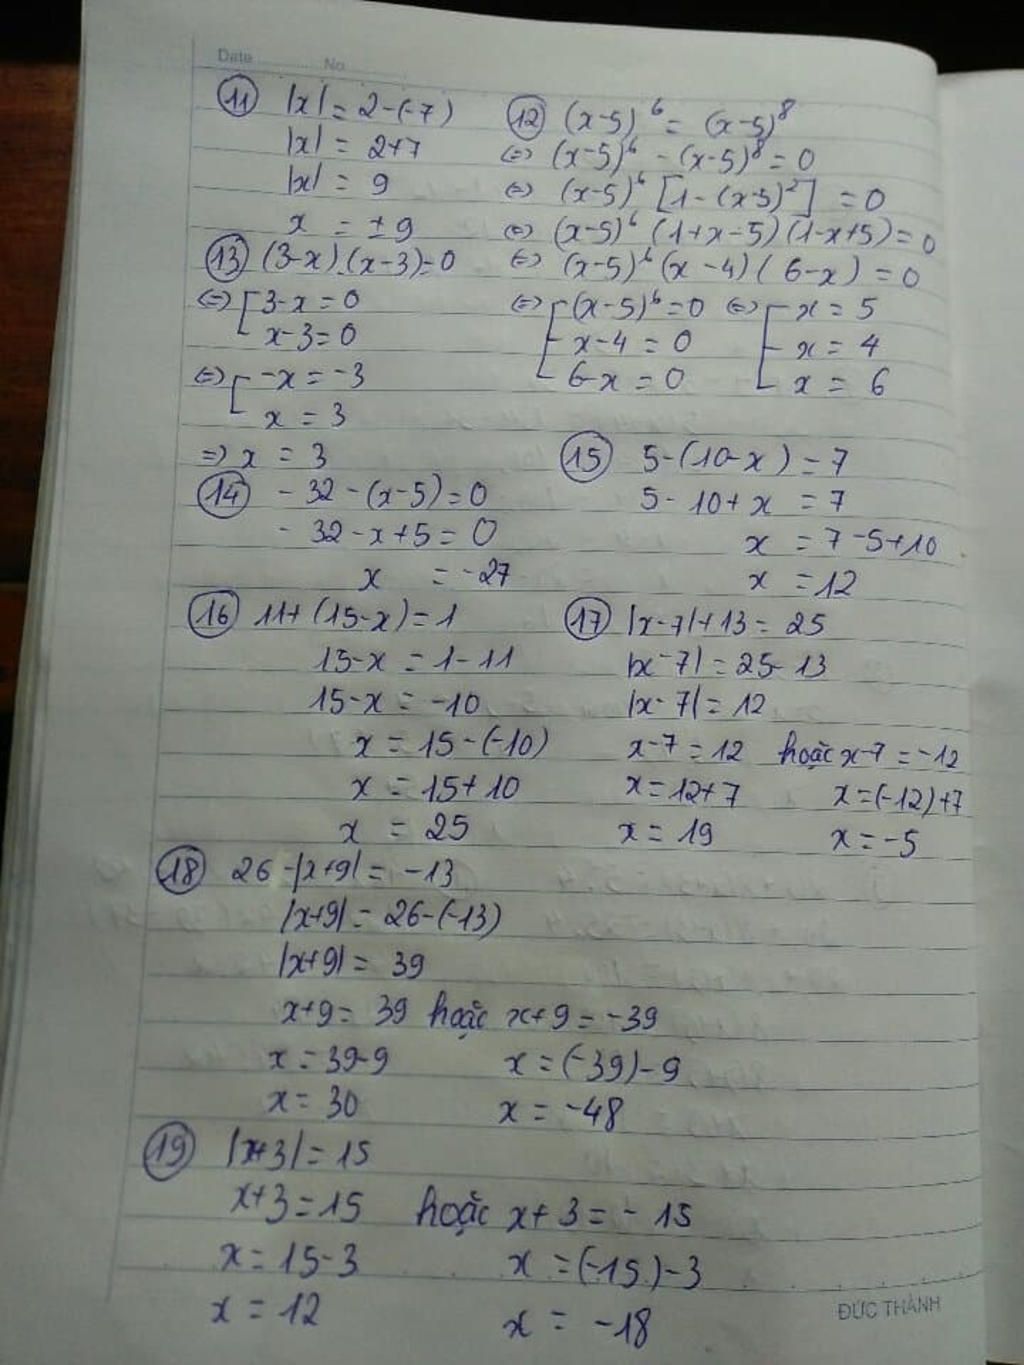 Date No
11 |x| = 2-(-7)
|x| = 2+7
|x| = 9
x = ±9
12 (x-5)⁶ = (x-5)⁸
⇔ (x-5)⁶ - (x-5)⁸ = 0
⇔ (x-5)⁶ [1-(x-5)²] = 0
⇔ (x-5)⁶ (1+x-5)(1-x+5) = 0
⇔ (x-5)⁶ (x-4)(6-x) = 0
⇔ [(x-5)⁶ = 0 ⇔ [x = 5
x-4 = 0 x = 4
6-x = 0 x = 6
13 (3-x).(x-3)=0
⇔ [3-x = 0
x-3 = 0
⇔ [-x = -3
x = 3
⇒ x = 3
14 -32-(x-5)=0
-32-x+5=0
x = -27
15 5-(10-x) = 7
5-10+x = 7
x = 7-5+10
x = 12
16 11+(15-x)=1
15-x = 1-11
15-x = -10
x = 15-(-10)
x = 15+10
x = 25
17 |x-7|+13 = 25
|x-7| = 25-13
|x-7| = 12
x-7 = 12 hoặc x-7 = -12
x = 12+7 x = (-12)+7
x = 19 x = -5
18 26-|x+9| = -13
|x+9| = 26-(-13)
|x+9| = 39
x+9 = 39 hoặc x+9 = -39
x = 39-9 x = (-39)-9
x = 30 x = -48
19 |x+3| = 15
x+3 = 15 hoặc x+3 = -15
x = 15-3 x = (-15)-3
x = 12 x = -18
ĐỨC THÀNH